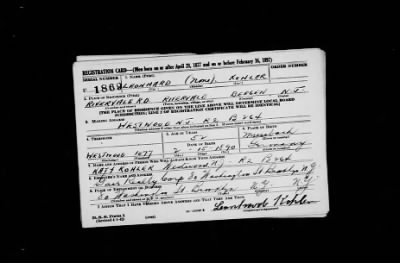 REGISTRATION CARD—(Men born on or after April 28, 1877 and on or before February 16, 1897)
SERIAL NUMBER 1. NAME (Print) ORDER NUMBER
U 186 LEONHARD (None) KOHLER
(First) (Middle) (Last)
2. PLACE OF RESIDENCE (Print)
RIVERVALE RD. RIVERVALE BERGEN N.J.
[THE PLACE OF RESIDENCE GIVEN ON THE LINE ABOVE WILL DETERMINE LOCAL BOARD
JURISDICTION; LINE 2 OF REGISTRATION CERTIFICATE WILL BE IDENTICAL]
3. MAILING ADDRESS
WESTWOOD N.J. R2 B 264
4. TELEPHONE 5. AGE IN YEARS 6. PLACE OF BIRTH
52
DATE OF BIRTH
WESTWOOD 1077 2 15 1890 Germany
7. NAME AND ADDRESS OF PERSON WHO WILL ALWAYS KNOW YOUR ADDRESS
KATY KOHLER Westwood N.J. R2 B 264
8. EMPLOYER'S NAME AND ADDRESS
Realty Corp 30 Washington St Brooklyn N.Y.
9. PLACE OF EMPLOYMENT OR BUSINESS
30 Washington St Brooklyn N.Y.
I AFFIRM THAT I HAVE VERIFIED ABOVE ANSWERS AND THAT THEY ARE TRUE.
D. S. S. Form 1